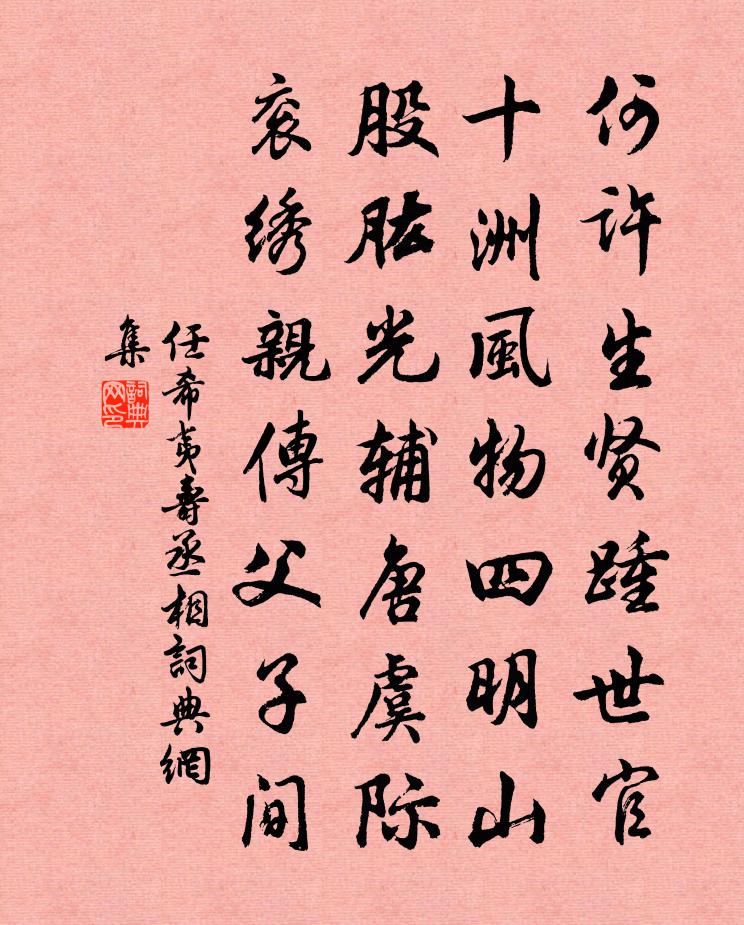 何许生贤踵世官
十洲風物四明山
股肱光辅唐虞际
衮绣親傳父子间
任希夷壽丞相詞典網
集
詞典网印